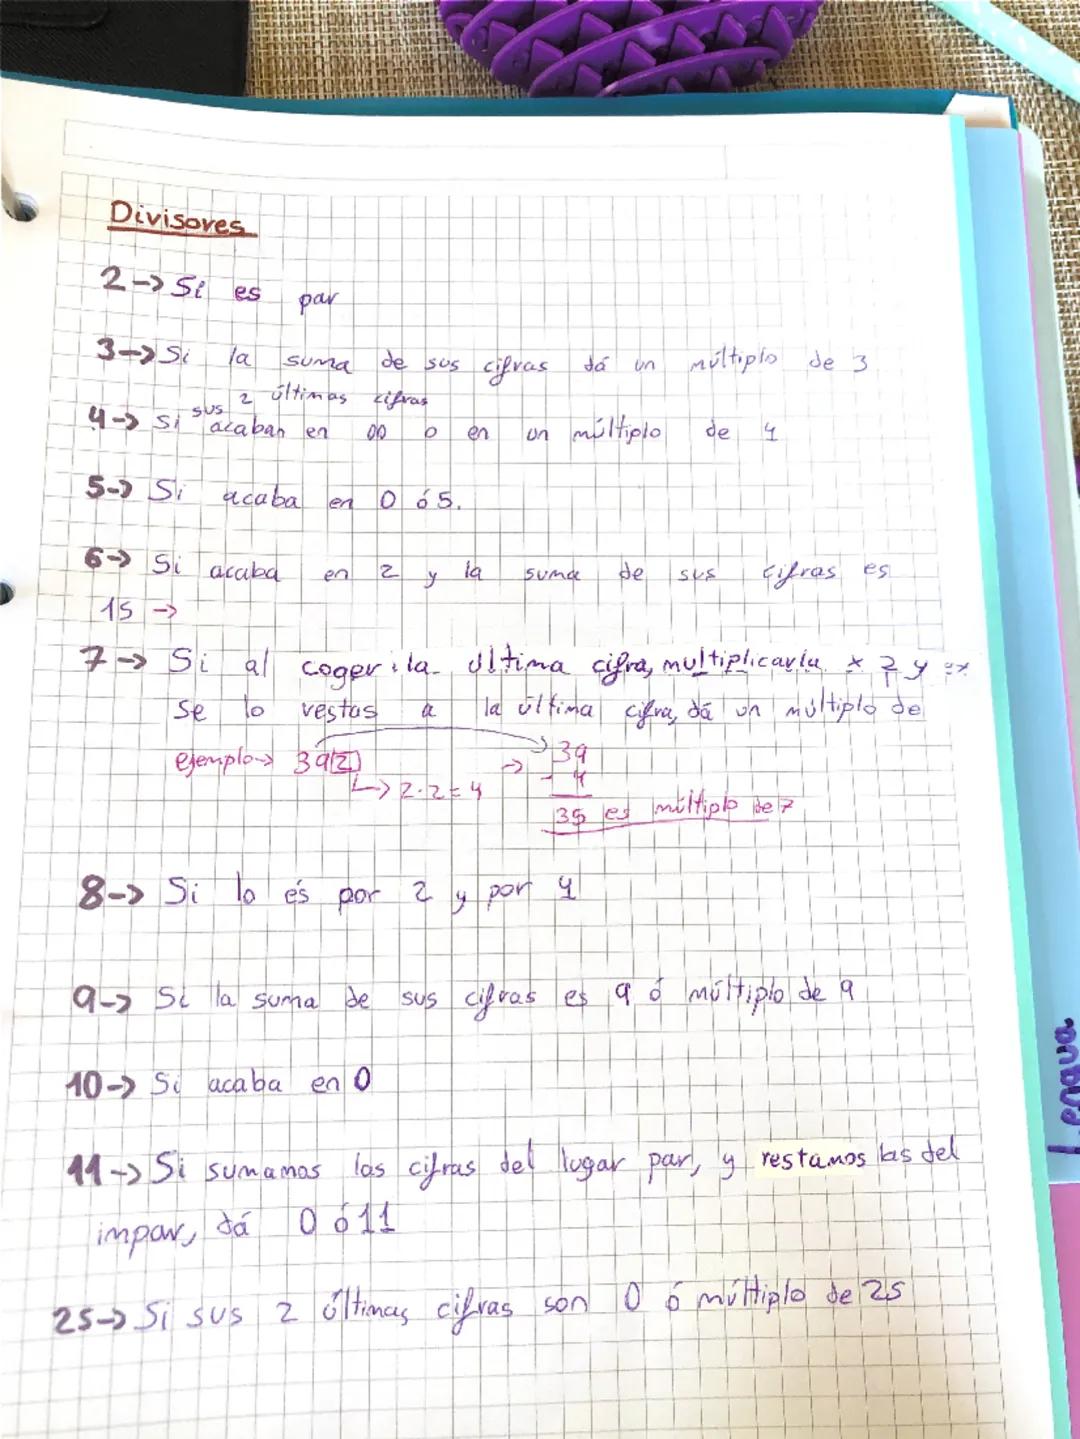 Divisores
2-> Si es par
3-> Si la suma de sus cifras dá un múltiplo de 3
sus 2 últimas cifras
4-> Si acaban en 00 o en un múltiplo de 4
5-> Si acaba en 0 ó 5.
6-> Si acaba en 2 y la suma de sus cifras es
15 ->
7-> Si al coger la última cifra, multiplicarla x 2 y
se lo restas a la última cifra, dá un múltiplo de
ejemplo-> 392 -> 39
-> 2·2=4 - 4
35 es múltiplo de 7
8-> Si lo és por 2 y por 4
9-> Si la suma de sus cifras es 9 ó múltiplo de 9
10-> Si acaba en 0
11-> Si sumamos las cifras del lugar par, y restamos las del
impar, dá 0 ó 11
25-> Si sus 2 últimas cifras son 0 ó múltiplo de 25
Lengua